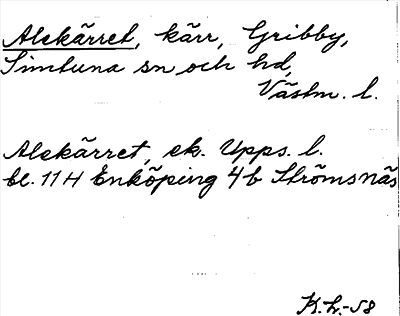 Alekärret, kärr, Gribby,
Simtuna sn och hd,
Västm. l.
Alekärret, ek. Upps. l.
bl. 11H Enköping 4b Strömsnäs
K.h.-58